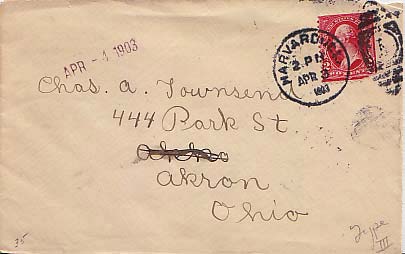 APR - 4 1903
HARVARD
2 PM
APR
1903
Chas. A. Townsend
444 Park St.
Akron
Ohio
35
Type
III